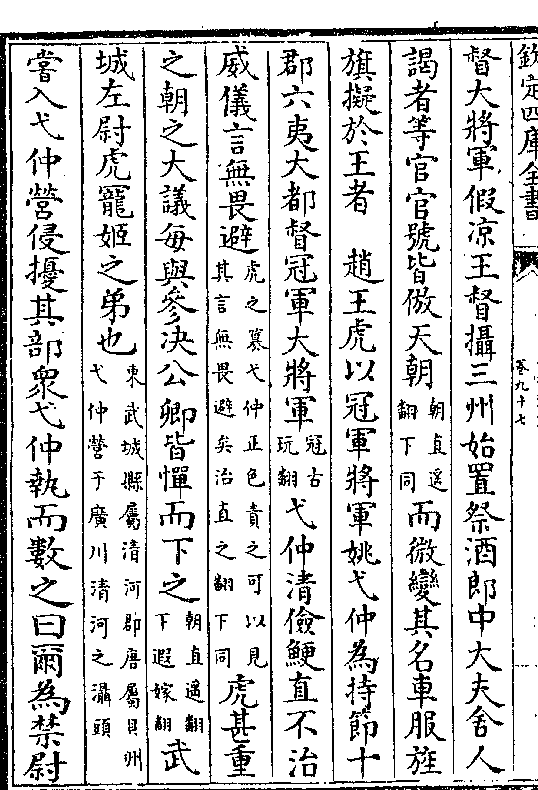 欽定四庫全書
卷九十七
督大將軍假涼王督攝三州始置祭酒郎中大夫舍人
謁者等官官號皆倣天朝朝直遥翻下同而微變其名車服旌
旗擬於王者　趙王虎以冠軍將軍姚弋仲為持節十
郡六夷大都督冠軍大將軍冠古玩翻弋仲清儉鯁直不治
威儀言無畏避虎之簒弋仲正色責之可以見其言無畏避矣治直之翻下同虎甚重
之朝之大議每與參決公卿皆憚而下之朝直遥翻下遐嫁翻武
城左尉虎寵姬之弟也東武城縣屬清河郡唐屬貝州弋仲營于廣川清河之灄頭
嘗入弋仲營侵擾其部衆弋仲執而數之曰爾為禁尉